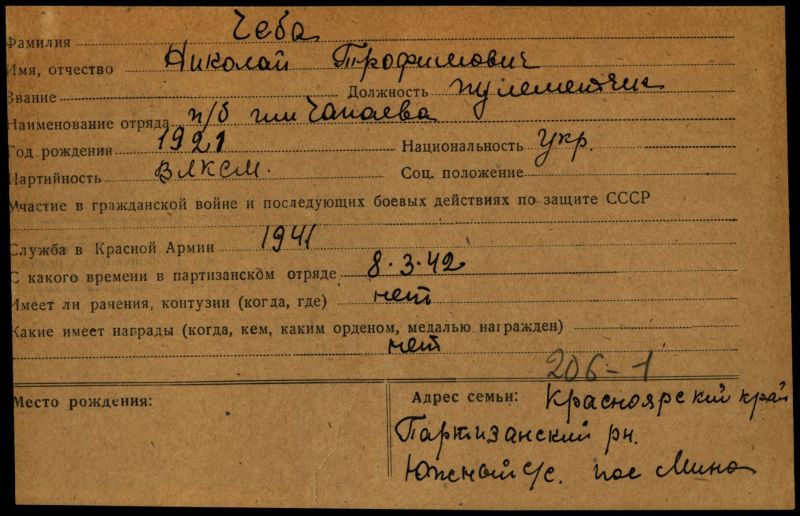 Фамилия Чеба
Имя, отчество Николай Трофимович
Звание Должность пулеметчик
Наименование отряда п/б им Чапаева
Год рождения 1921 Национальность укр.
Партийность ВЛКСМ. Соц. положение
Участие в гражданской войне и последующих боевых действиях по защите СССР
Служба в Красной Армии 1941
С какого времени в партизанском отряде 8.3.42
Имеет ли ранения, контузии (когда, где) нет
Какие имеет награды (когда, кем, каким орденом, медалью награжден)
нет
206-1
Место рождения: Адрес семьи: Красноярский край
Партизанский рн.
Южный с/с. пос Мина